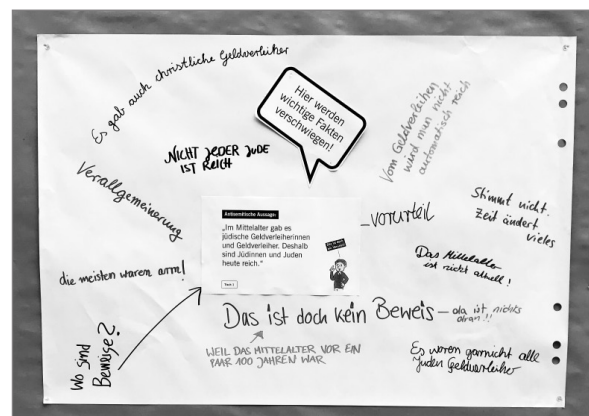 Es gab auch christliche Geldverleiher
Hier werden
wichtige Fakten
verschwiegen!
Vom Geldverleihen
wird man nicht
automatisch reich
NICHT JEDER JUDE
IST REICH
Verallgemeinerung
Antisemitische Aussage:
„Im Mittelalter gab es
jüdische Geldverleiherinnen
und Geldverleiher. Deshalb
sind Jüdinnen und Juden
heute reich.“
Team 1
Vorurteil
Stimmt nicht.
Zeit ändert
vieles
Das Mittelalter
ist nicht aktuell!
die meisten waren arm!
Das ist doch kein Beweis – da ist nichts
dran!!
WEIL DAS MITTELALTER VOR EIN
PAAR 100 JAHREN WAR
Wo sind
Beweise?
Es waren garnicht alle
Juden Geldverleiher